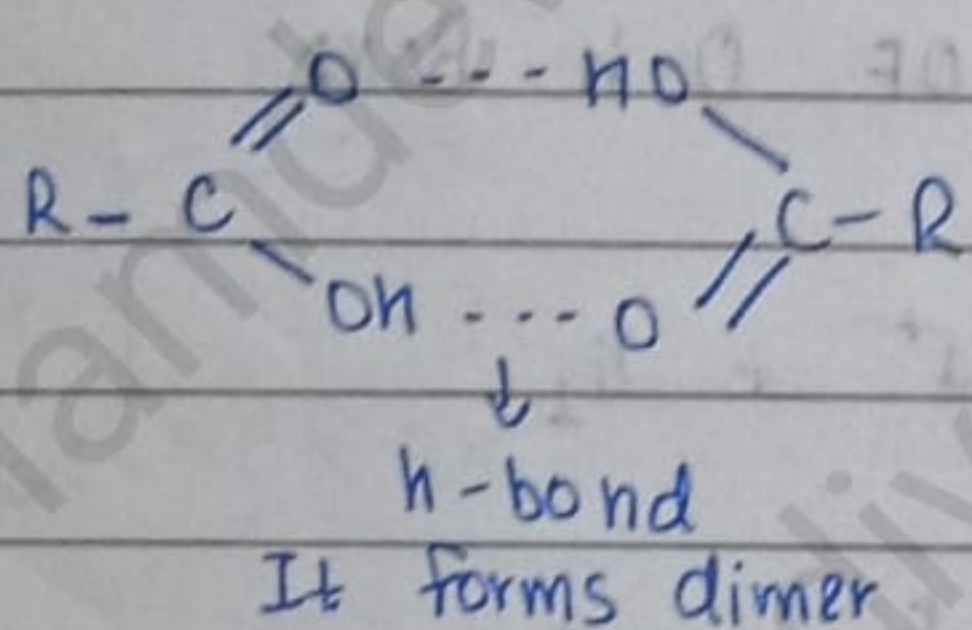 O --- HO
R - C C - R
OH --- O
h-bond
It forms dimer